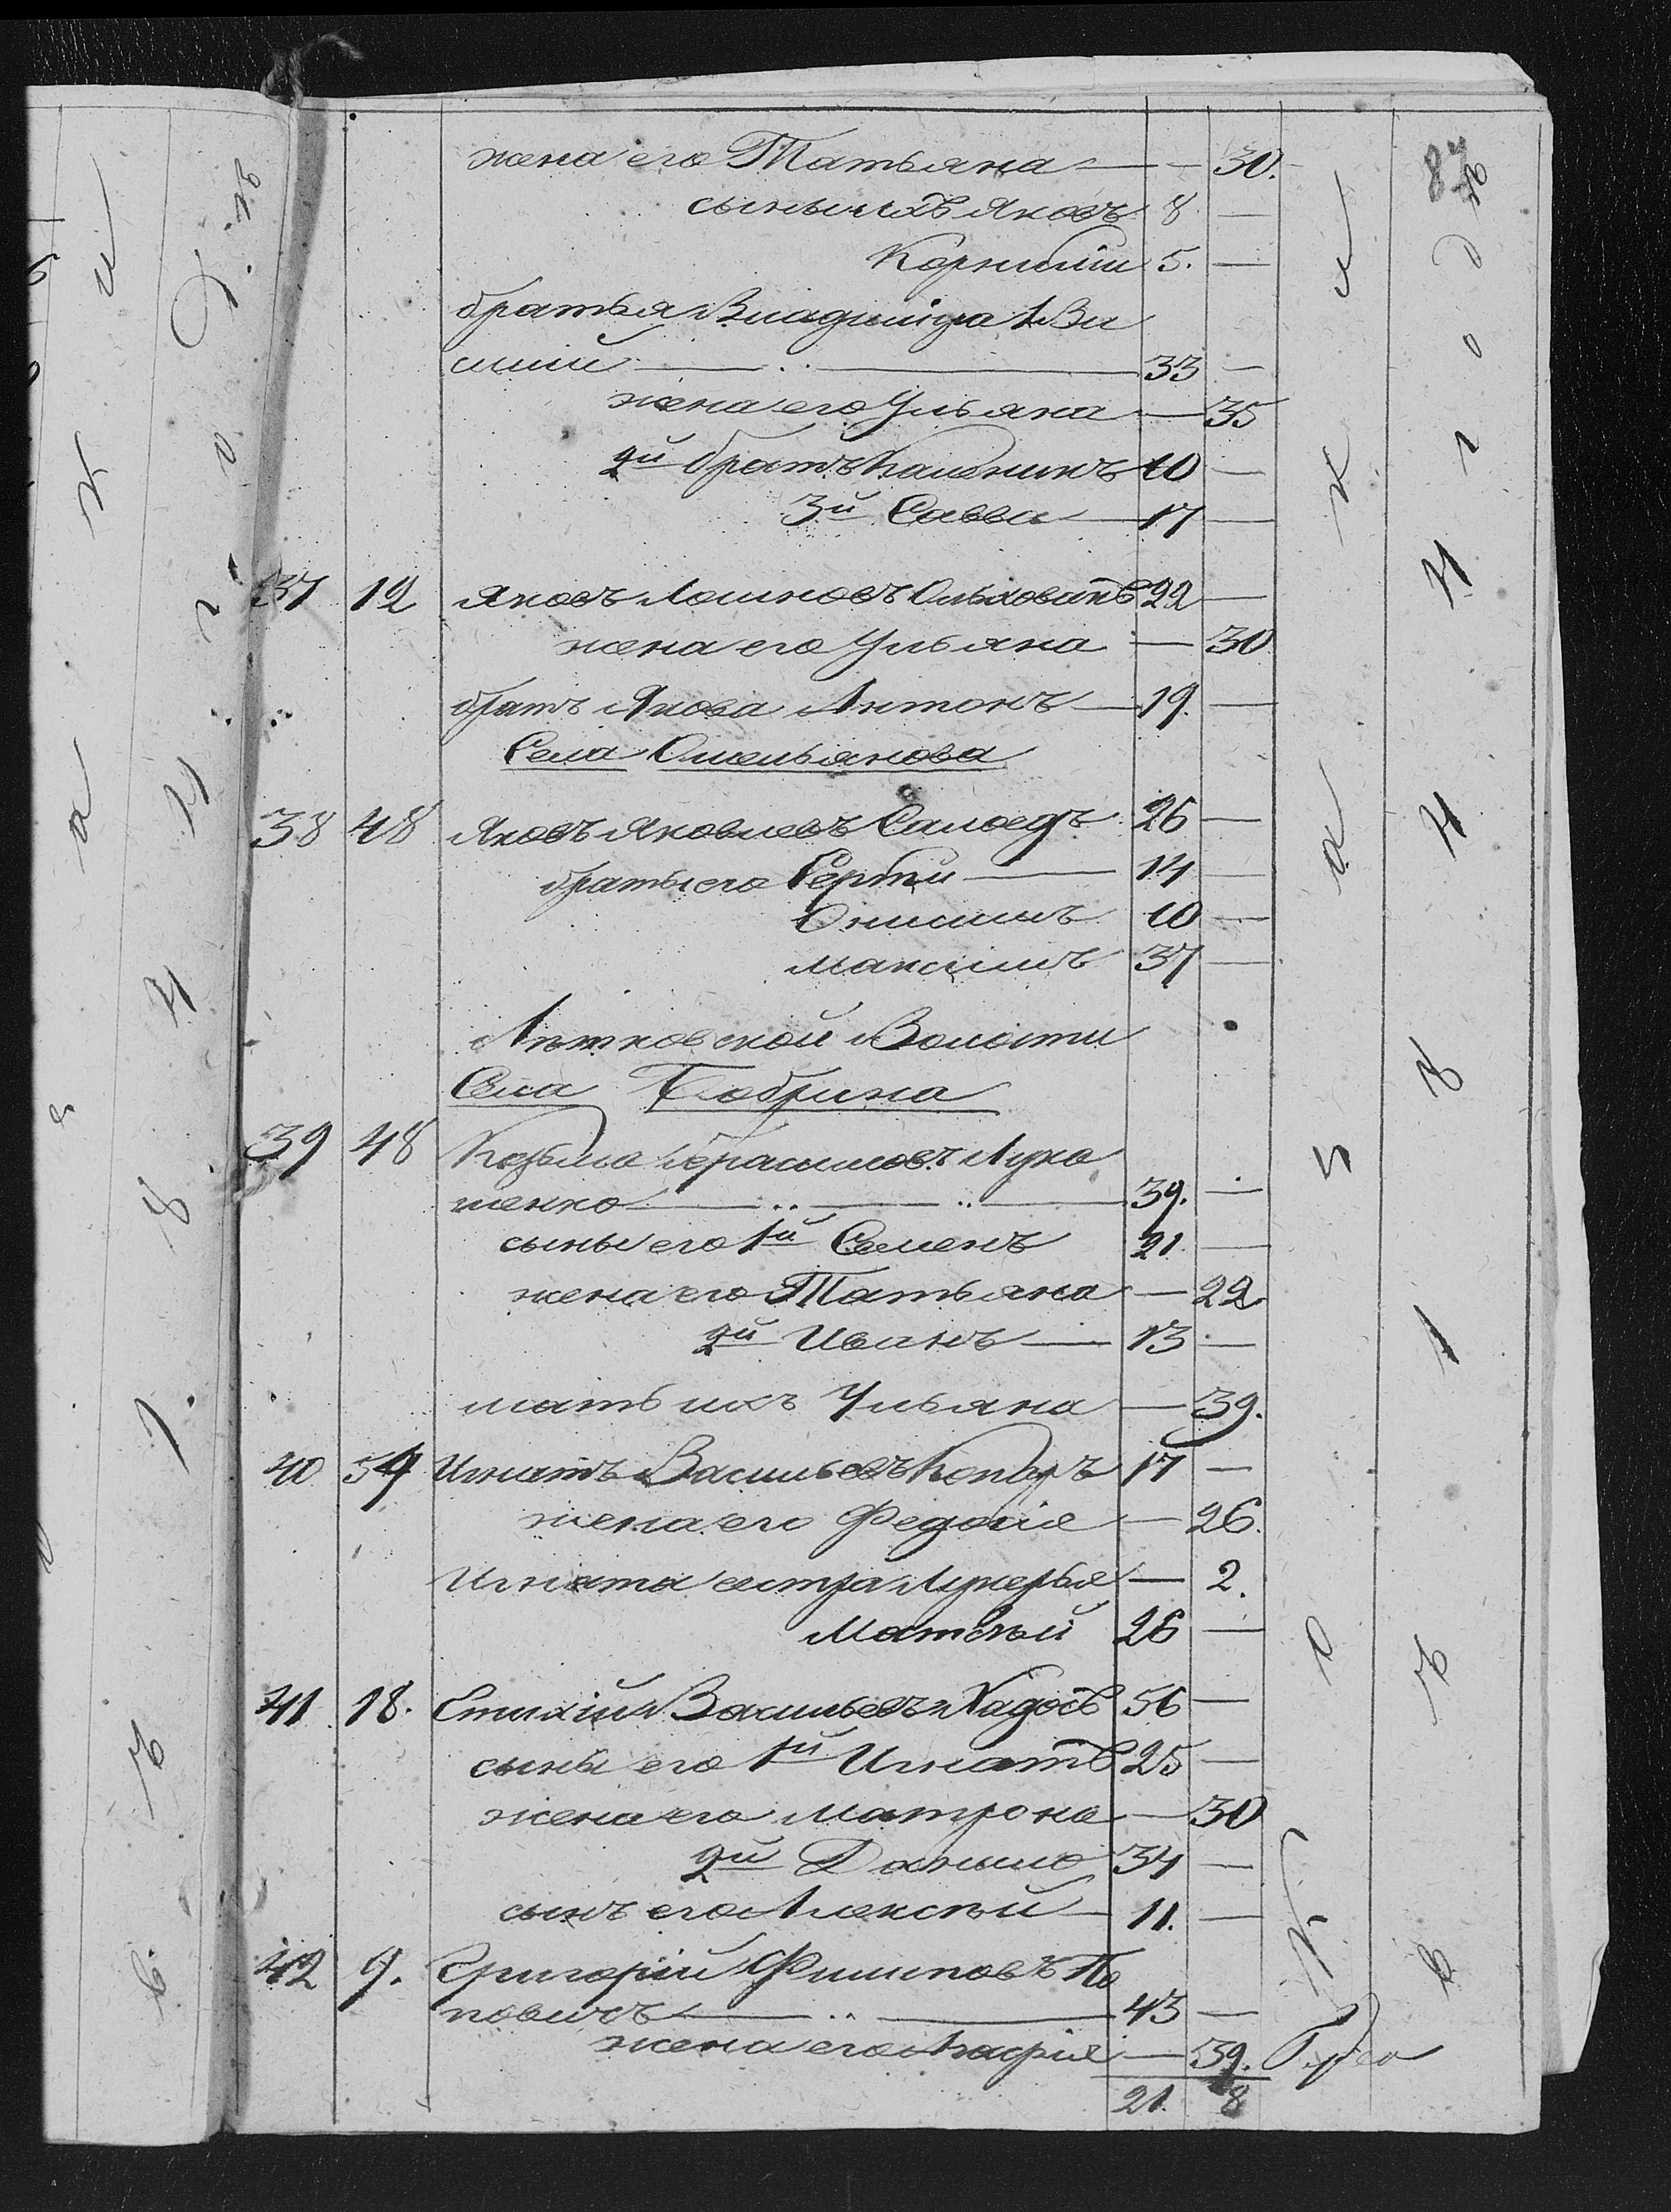 87
жена его Татьяна — — 30.
сыны ихъ Яковъ 8 —
Корнилій 5. —
братья Владиміра 1 Ва
силій — .. — 33 —
жена его Ульяна — 35
2й братъ Калѣникъ 10 —
3й Савва — 17 —
37 12 Яковъ Ольховикъ 22 —
жена его Ульяна — 30
братъ Якова Антонъ — 19. —
Села Омельянова
38 48 Яковъ Яковлевъ Самоедъ 26 —
братья его Сергѣй — 14 —
Онисимъ 10 —
Максимъ 37 —
Лѣтковской Волости
Села Бобрика
39 48 Козьма Герасимовъ Лука
шенко — .. — .. — 39. —
сыны его 1й Семенъ 21. —
жена его Татьяна — 22
2й Иванъ — 13 —
мать ихъ Ульяна — 39.
40 54 Игнатъ Васильевъ 17 —
жена его Федосія — 26.
Игната сестра Лукерья — 2.
Матвѣй 26 —
41 18. Евтихій Васильевъ 56 —
сыны его 1й Игнатъ 25 —
жена его Матрона — 30
2й Данило 34 —
сынъ его Алексѣй — 11. —
42 9. Григорій Филиповъ По
повичъ — .. — 43 —
жена его Агафія — 39.
21. 8